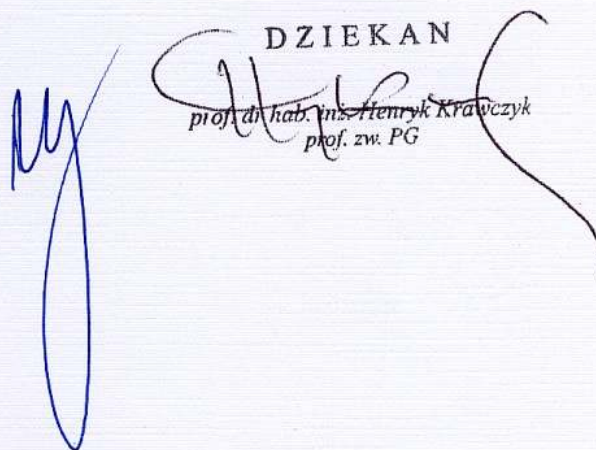 DZIEKAN
prof. dr hab. inż. Henryk Krawczyk
prof. zw. PG